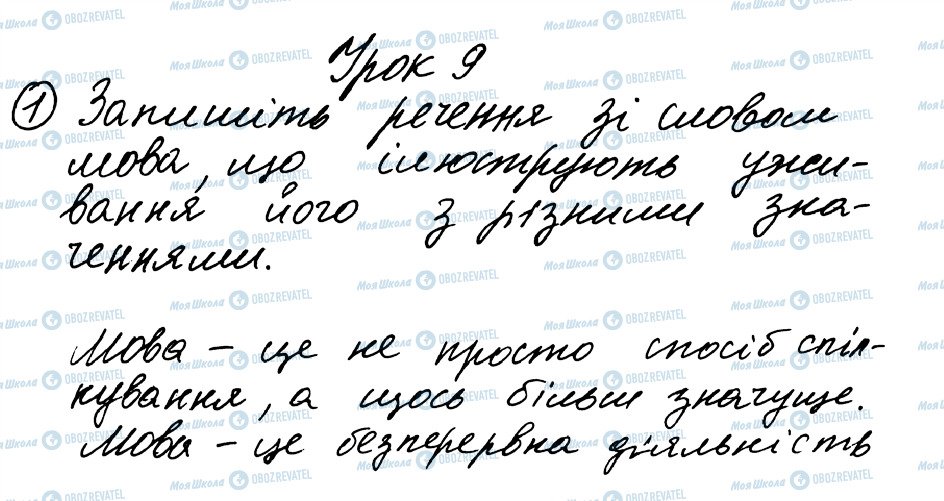 Урок 9
① Запишіть речення зі словом
мова, що ілюструють ужи-
вання його з різними зна-
ченнями.
Мова – це не просто спосіб спіл-
кування, а щось більш значуще.
Мова – це безперервна діяльність